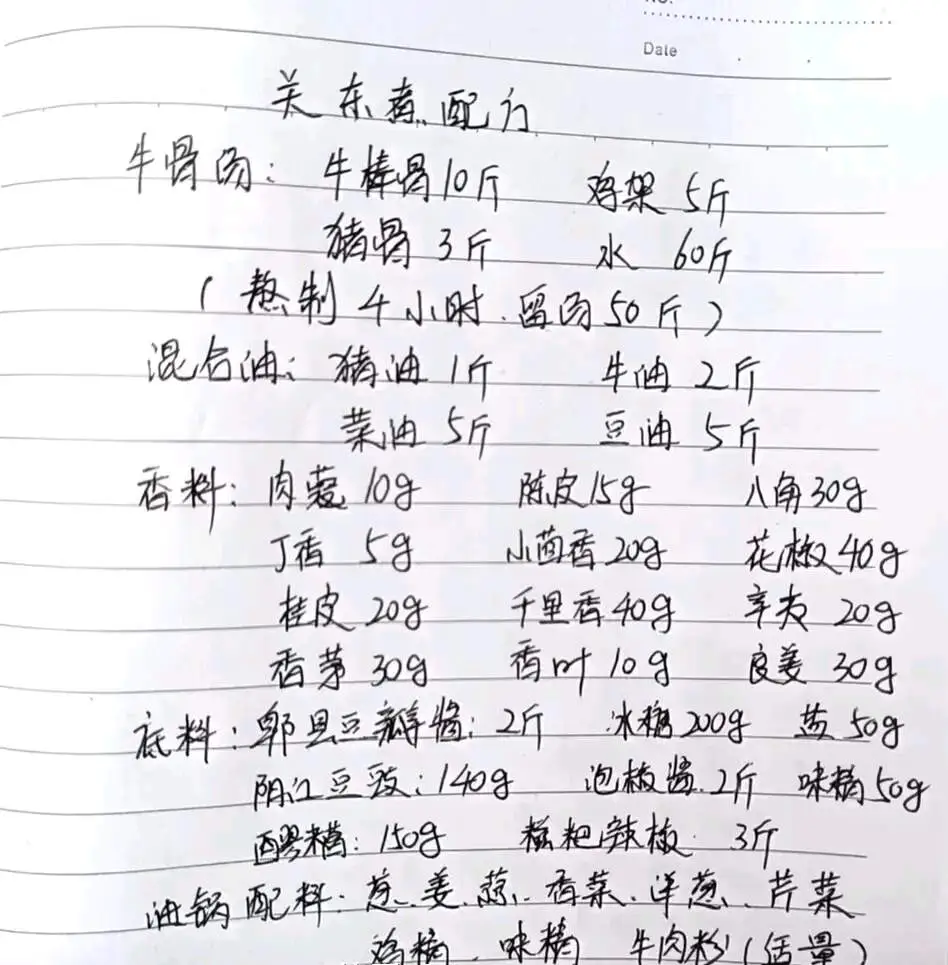 Date
关东煮配方
牛骨汤: 牛棒骨10斤 鸡架 5斤
猪骨 3斤 水 60斤
(熬制 4小时.留汤50斤)
混合油: 猪油 1斤 牛油 2斤
菜油 5斤 豆油 5斤
香料: 肉蔻 10g 陈皮15g 八角30g
丁香 5g 小茴香20g 花椒40g
桂皮 20g 千里香40g 辛夷 20g
香茅 30g 香叶 10g 良姜 30g
底料: 郫县豆瓣酱: 2斤 冰糖200g 盐50g
阳江豆豉: 140g 泡椒酱.2斤 味精50g
醪糟: 150g 糍粑辣椒 3斤
油锅配料: 葱.姜.蒜.香菜.洋葱.芹菜
鸡精.味精 牛肉粉(适量)